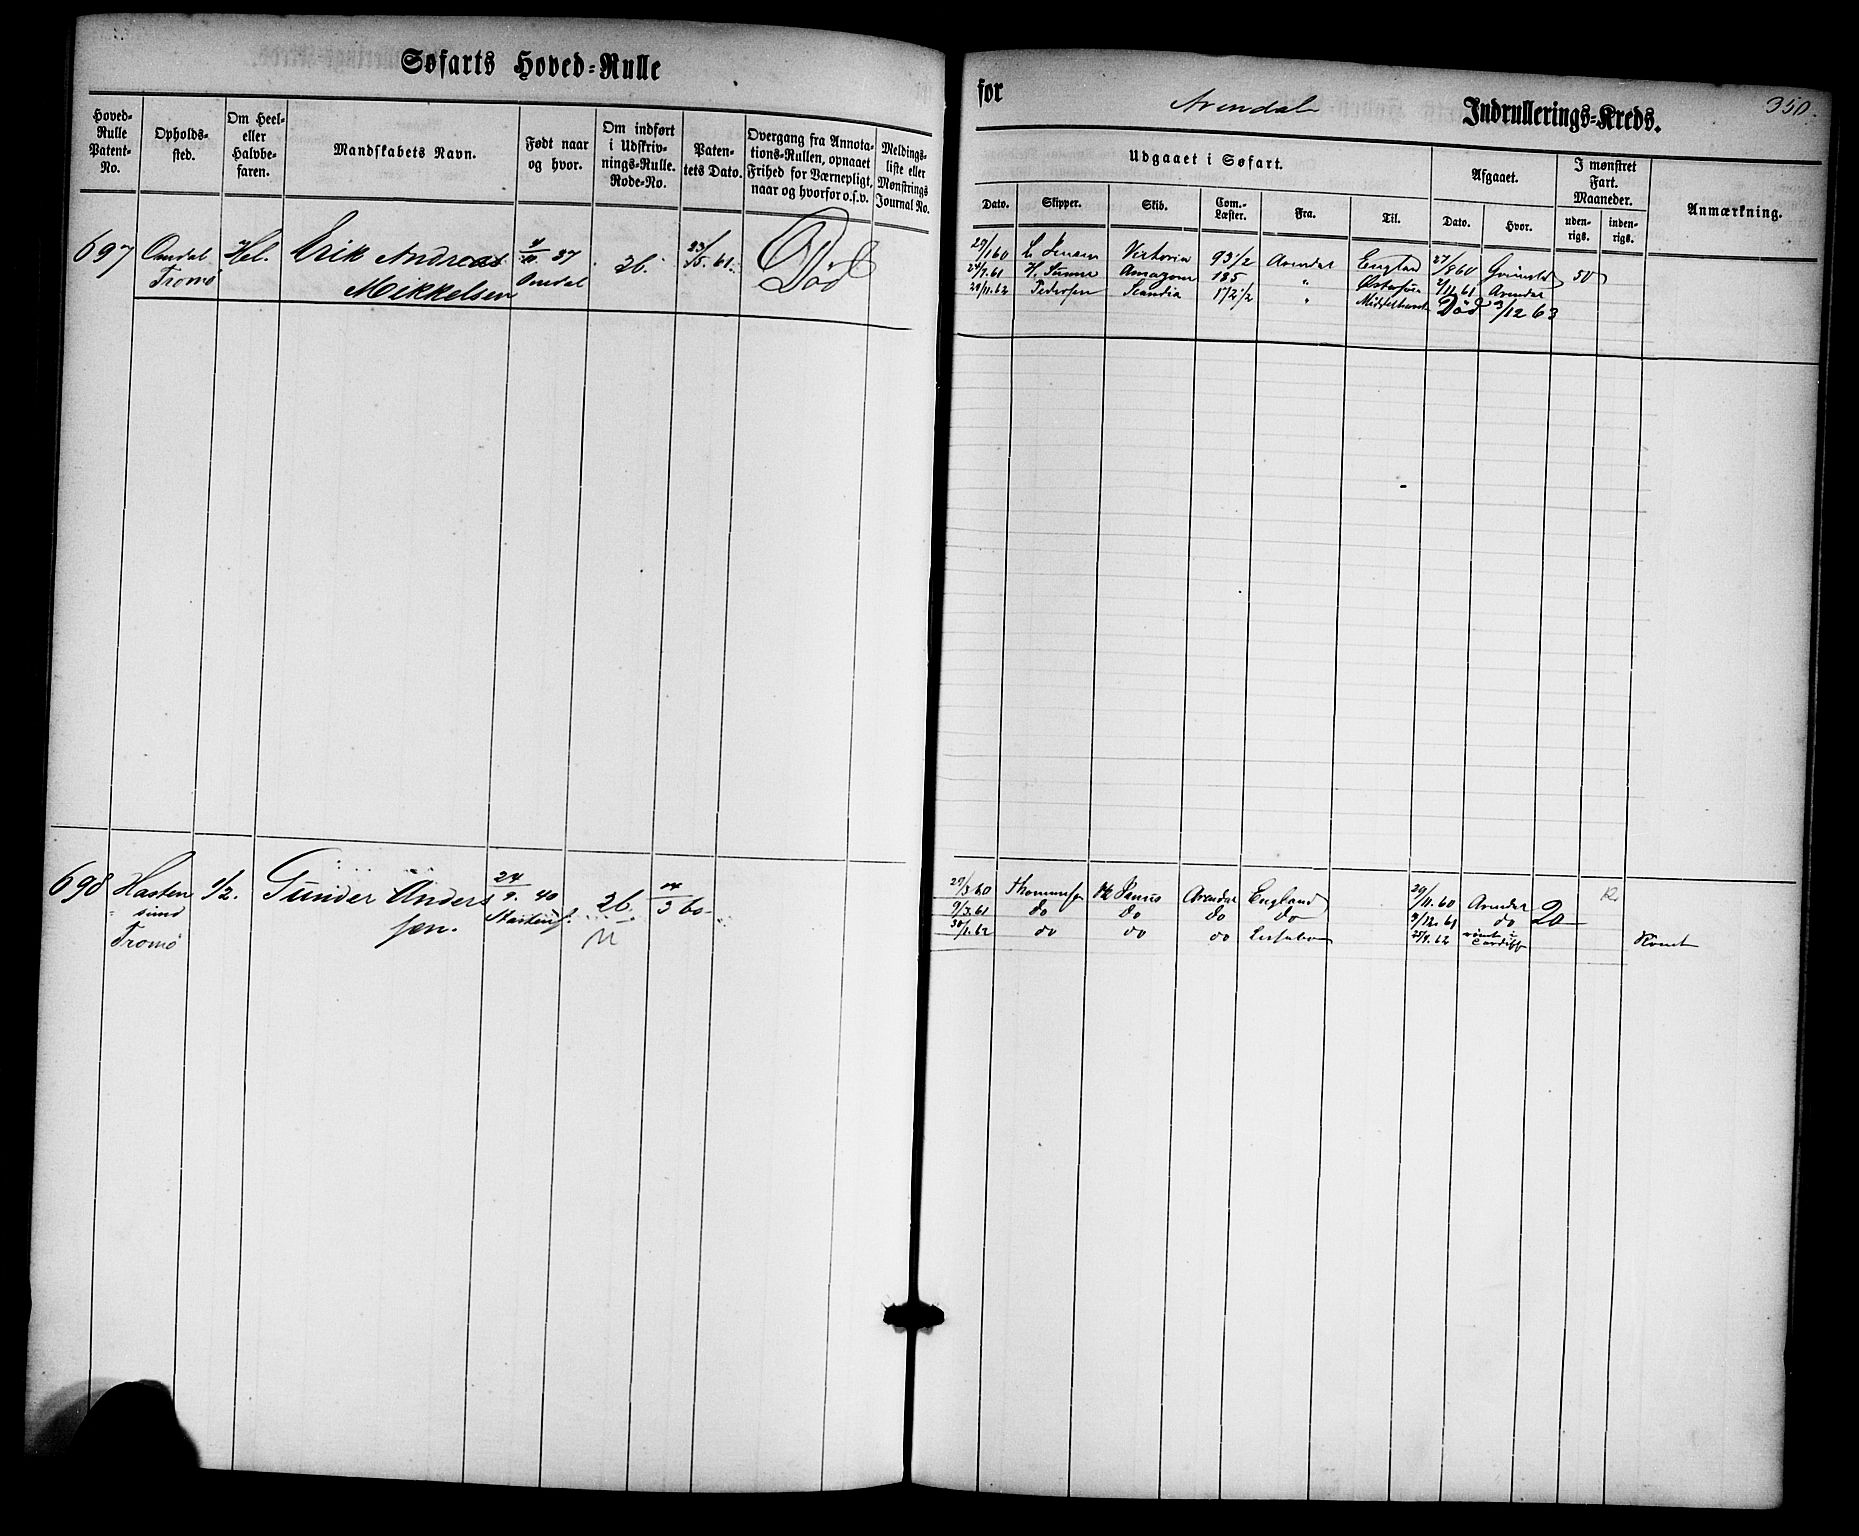 Søfarts Hoved-Rulle
for Arendals Indrullerings-Kreds.
350.
Hoved-Rulle Patent-No.
Opholds-sted.
Om Heel- eller Halvbe-faren.
Mandskabets Navn.
Født naar og hvor.
Om indført i Udskriv-nings-Rulle. Rode-No.
Paten-tets Dato.
Overgang fra Annota-tions-Rullen, opnaaet Frihed for Værnepligt, naar og hvorfor o.s.v.
Meldings-liste eller Mønstrings Journal No.
Udgaaet i Søfart.
Afgaaet.
I mønstret Fart. Maaneder.
Anmærkning.
Dato.
Skipper.
Skib.
Com.-Læster.
Fra.
Til.
Dato.
Hvor.
uden-rigs.
inden-rigs.
697 Omdal Hel. Erik Andreas 37 26. 23/5. 61. Død
Tromø Mikkelsen Omdal
29/1 60 Jensen Victoria 93 1/2 Arendal England 27/8 60 Grimstad 50
24/7. 61 Amazone 185 " Østersøen 2/11 61 Arendal
20/11. 62 Pedersen Scandia 172 1/2 " Død 3/12 63
698 Hasten 1/2. Gunder Anders 24/9. 40 26. 14/3 60
sund sen.
Tromø
29/3 60 Thommesen Arendal England 29/11. 60 Arendal 20
9/3. 61 do do do do 9/12. 61 do
30/1. 62 do do do 25/4. 62 rømt i Cardiff Rømt